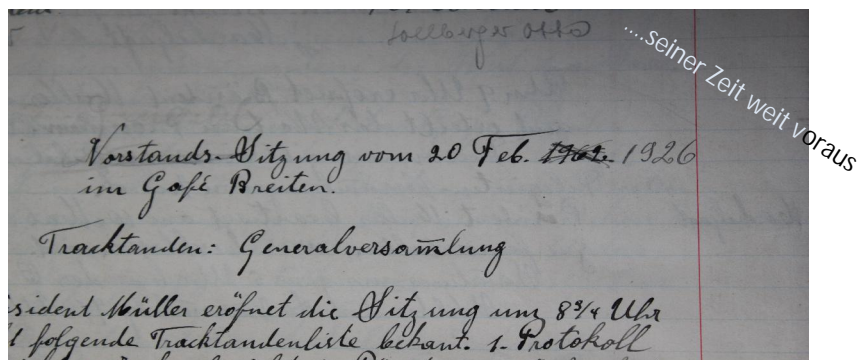 ....seiner Zeit weit voraus
Vorstands-Sitzung vom 20 Feb. 1962. 1926
im Gafé Breiten.
Tracktanden: Generalversam̅lung
sident Müller eröfnet die Sitzung um 8¾ Uhr
folgende Tracktandenliste bekant. 1. Protokoll